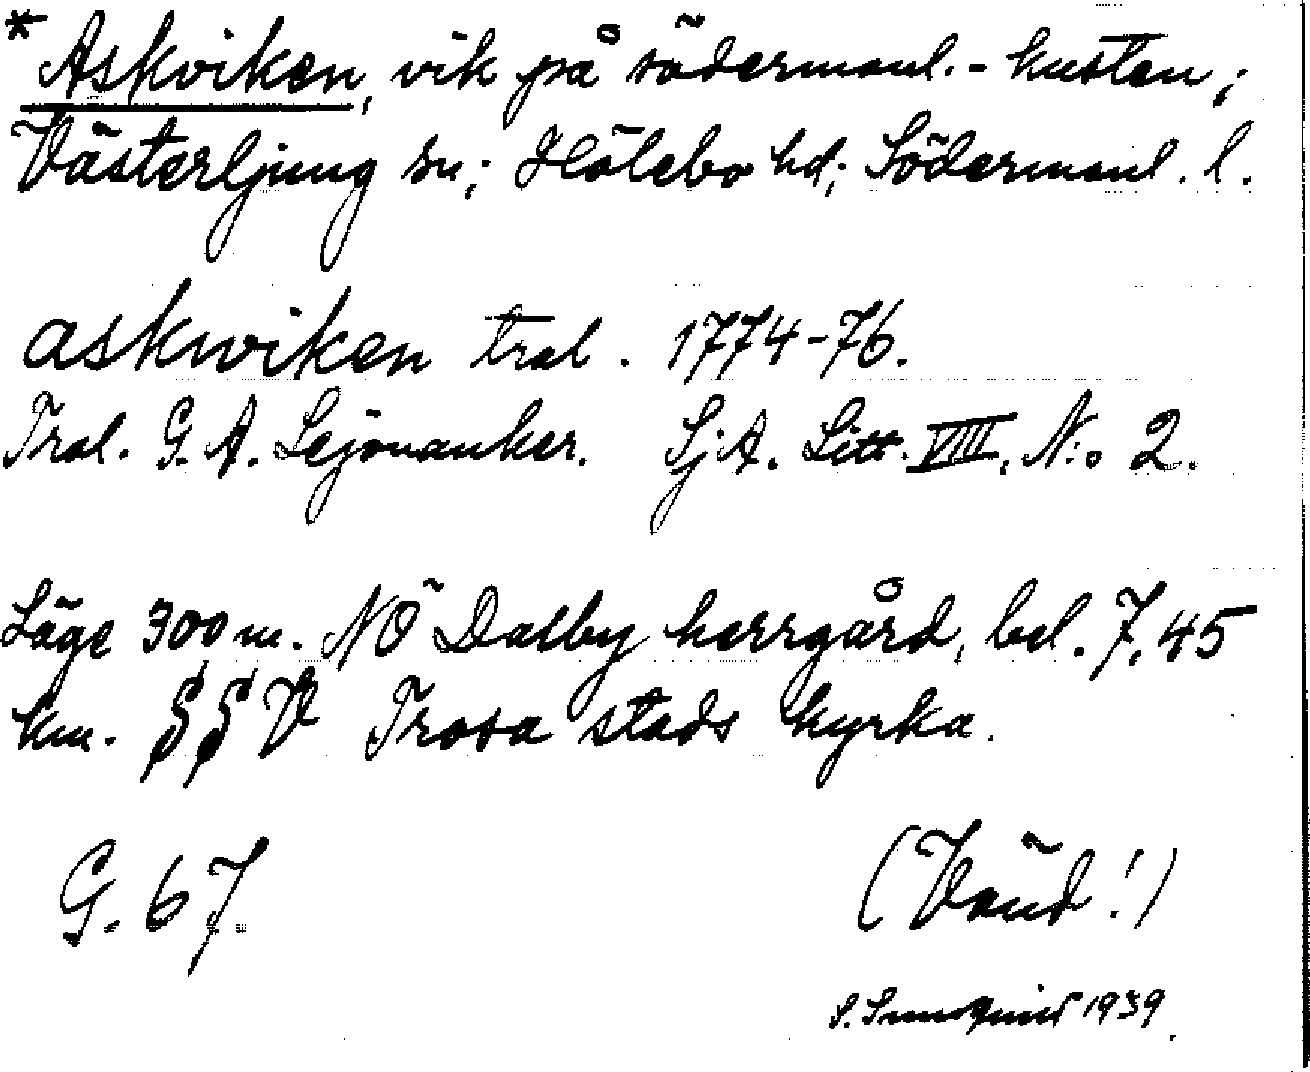 * Askviken, vik på södermanl.-kusten;
Västerljung sn; Hölebo hd; Södermanl. l.
askwiken tral. 1774-76.
Tral. G. A. Lejonanker. SjA. Litt. VIII. N:o 2.
Läge 300 m. NÖ Dalby herrgård, bel. 7,45
km. SSV Trosa stads kyrka.
G. 67.
(Vänd!)
S. Sundquist 1939.